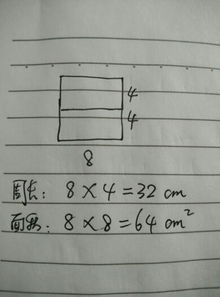 4
4
8
周长: 8×4=32 cm
面积: 8×8=64 cm²